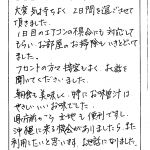 大変気持ちよく2日間を過ごさせて
頂きました。
1日目のエアコンの不具合にも対応して
もらい、お部屋のお掃除もいきとどいて
ました。
フロントの方々も親切で、よくお話を
聞いてくださいました。
朝食も美味しく、特にお味噌汁は
やさしい、いいお味でした。
県庁前のろ も便利ですし、
沖縄に来る機会がありましたら、また
利用したいと思います。お世話になりました